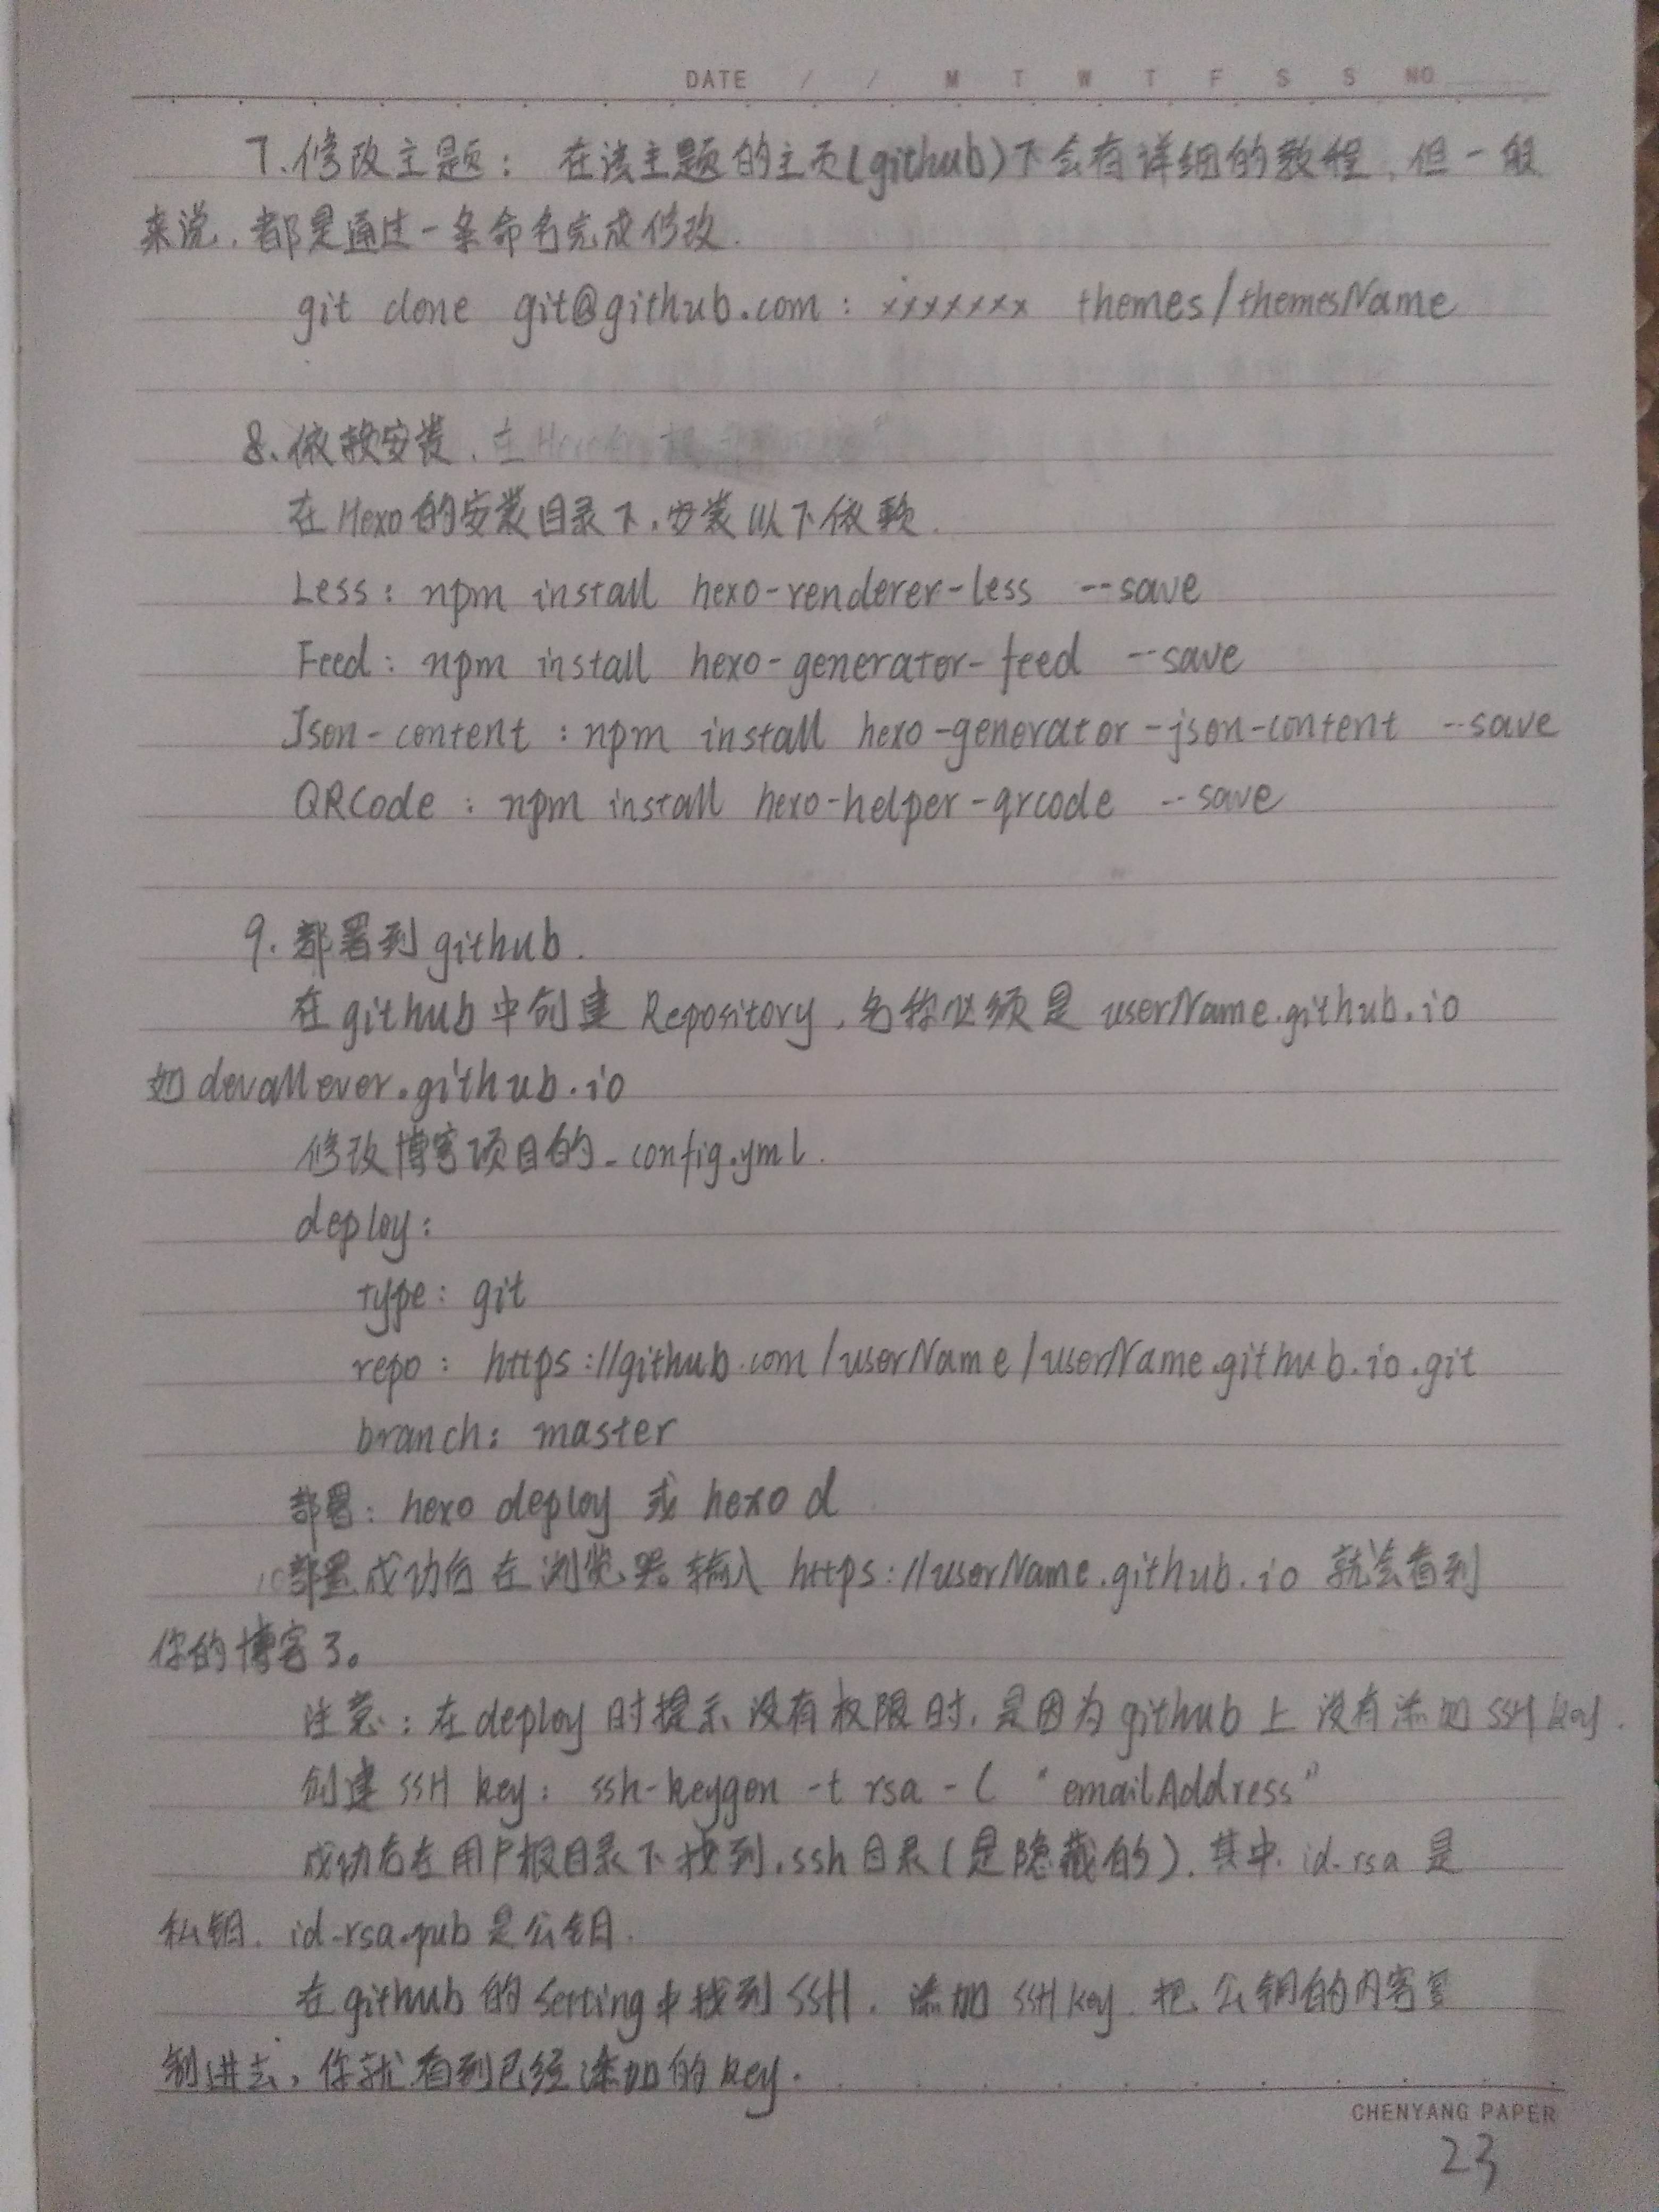 DATE / / M T W T F S S NO
7.修改主题： 在该主题的主页(github)下会有详细的教程，但一般
来说，都是通过一条命名完成修改.
git clone git@github.com : xxxxxxx themes/themesName
8.依赖安装.
在Hexo的安装目录下，安装以下依赖.
Less: npm install hexo-renderer-less --save
Feed: npm install hexo-generator-feed --save
Json-content : npm install hexo-generator-json-content --save
QRCode : npm install hexo-helper-qrcode --save
9. 部署到github.
在github中创建 Repository，名称必须是 userName.github.io
如devallever.github.io
修改博客项目的_config.yml.
deploy:
type: git
repo: https://github.com/userName/userName.github.io.git
branch: master
部署: hexo deploy 或 hexo d
部署成功后在浏览器输入 https://userName.github.io 就会看到
你的博客了。
注意：在deploy时提示没有权限时，是因为github上没有添加SSH key.
创建SSH key: ssh-keygen -t rsa -C "emailAddress"
成功后在用户根目录下找到.ssh目录(是隐藏的). 其中 id-rsa 是
私钥. id-rsa.pub是公钥.
在github的Setting中找到SSH. 添加 SSH key. 把公钥的内容复
制进去，你就看到已经添加的key.
CHENYANG PAPER
23